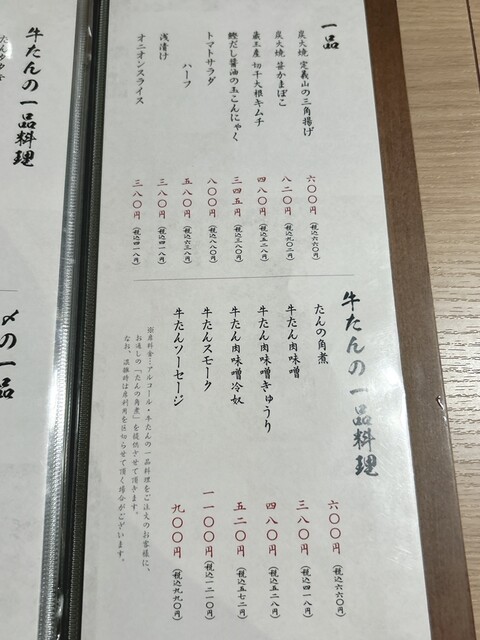 一品
炭火焼 定義山の三角揚げ 六〇〇円(税込六六〇円)
炭火焼 笹かまぼこ 八二〇円(税込九〇二円)
蔵王産 切干大根キムチ 四八〇円(税込五二八円)
鰹だし醤油の玉こんにゃく 三四五円(税込三八〇円)
トマトサラダ 八〇〇円(税込八八〇円)
ハーフ 五八〇円(税込六三八円)
浅漬け 三八〇円(税込四一八円)
オニオンスライス 三八〇円(税込四一八円)
牛たんの一品料理
たんの角煮 六〇〇円(税込六六〇円)
牛たん肉味噌 三八〇円(税込四一八円)
牛たん肉味噌きゅうり 四八〇円(税込五二八円)
牛たん肉味噌冷奴 五二〇円(税込五七二円)
牛たんスモーク 一一〇〇円(税込一二一〇円)
牛たんソーセージ 九〇〇円(税込九九〇円)
※席料金…アルコール・牛たんの一品料理をご注文のお客様に、
お通しの「たんの角煮」を提供させて頂きます。
なお、混雑時は席利用を区切らせて頂く場合がございます。
牛たんの一品料理
〆の一品